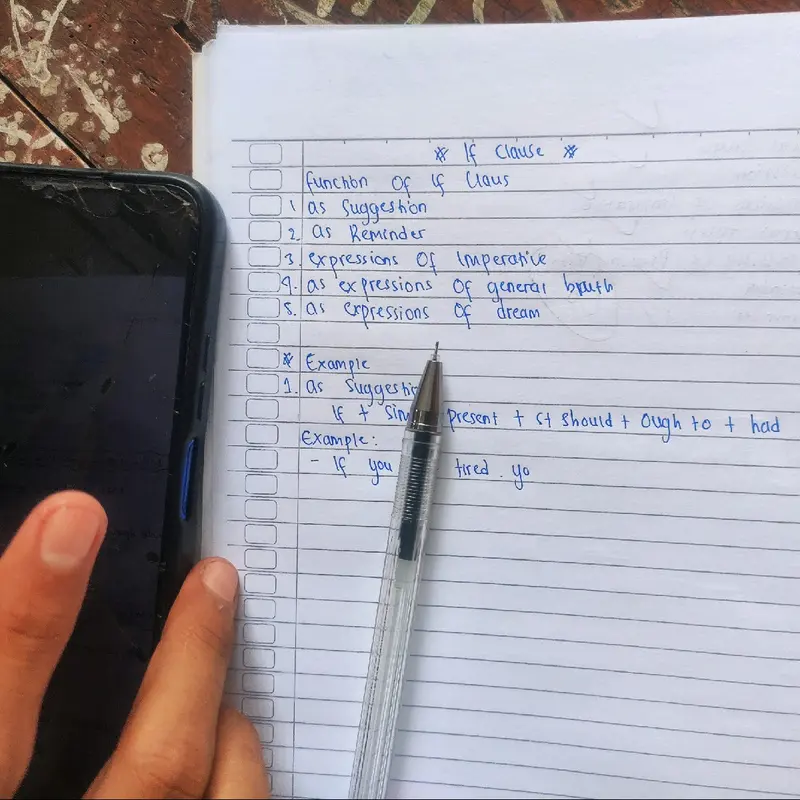 * If Clause *
function Of If Claus
1. as Suggestion
2. as Reminder
3. expressions Of Imperative
4. as expressions Of general
5. as expressions Of dream
* Example
1. as
If + present + St should + Ough to + had
Example:
- If you tired. yo